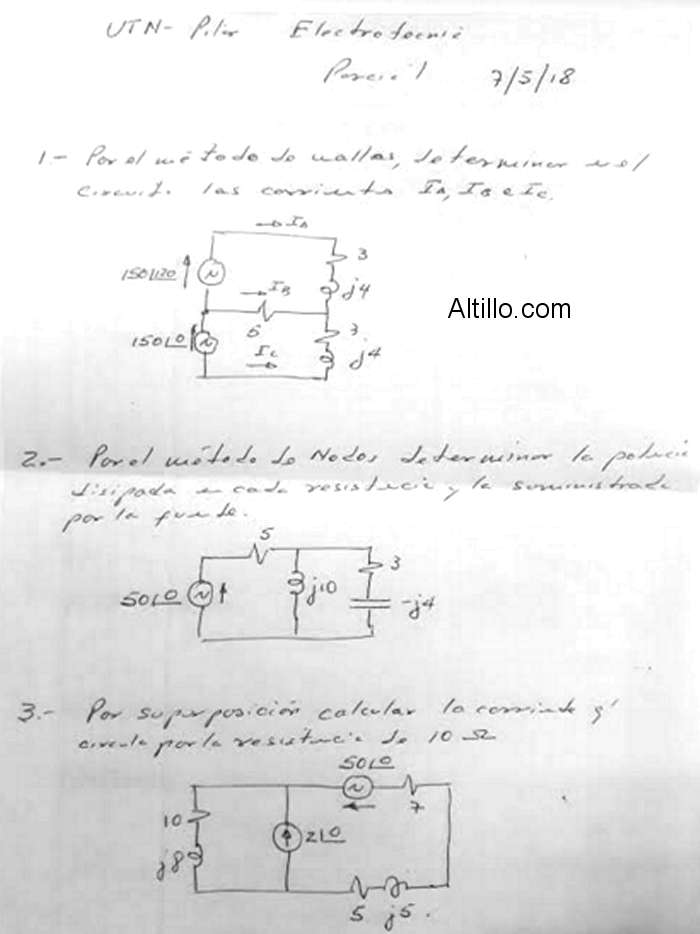 UTN- Pilar Electrotecnia
Parcial 7/5/18
1.- Por el método de mallas, determinar en el
circuito las corrientes IA, IB e IC.
IA
3
150∠120
j4
IB
Altillo.com
150∠0
3
IC
j4
2.- Por el método de Nodos determinar la potencia
disipada en cada resistencia y la suministrada
por la fuente.
5
3
50∠0
j10
-j4
3.- Por superposición calcular la corriente q'
circula por la resistencia de 10 Ω
50∠0
7
10
2∠0
j8
5 j5.